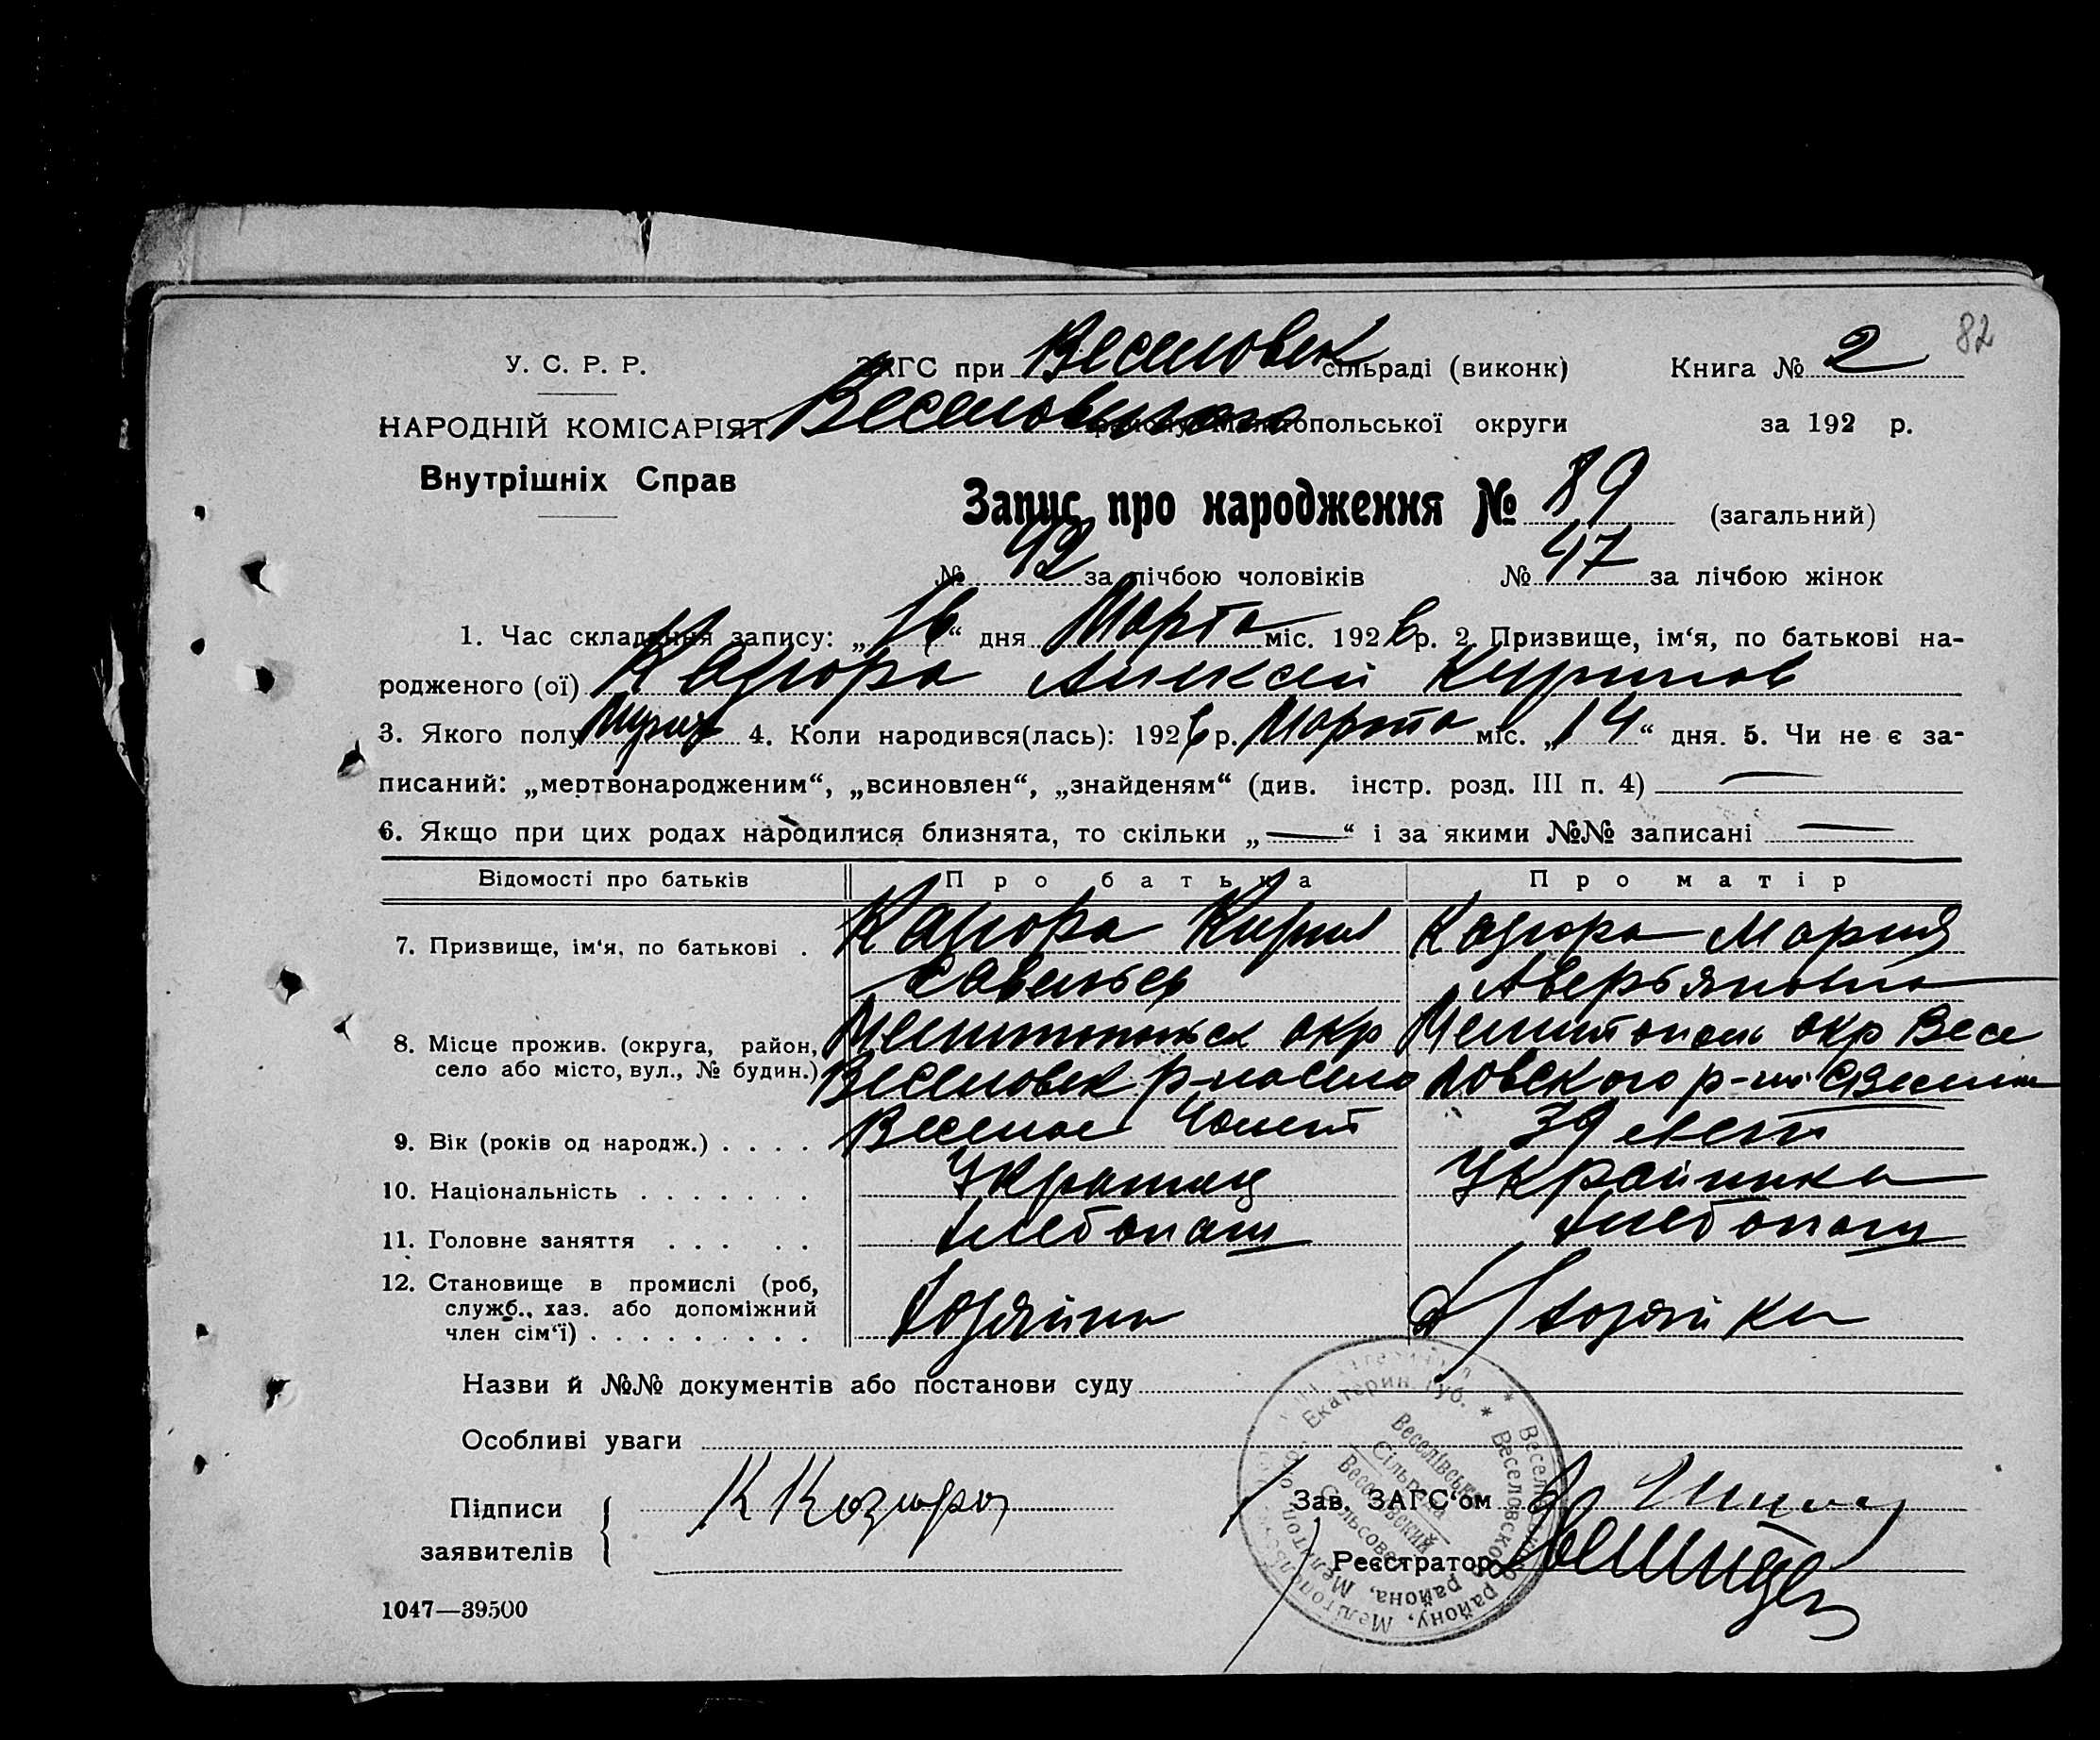 82
У. С. Р. Р.
ЗАГС при Веселовск сільраді (виконк)
Книга № 2
НАРОДНІЙ КОМІСАРІЯТ
Веселовського району Мелітопольської округи
за 192 р.
Внутрішніх Справ
Запис про народження № 89 (загальний)
№ 42 за лічбою чоловіків № 47 за лічбою жінок
1. Час складання запису: „16“ дня Марта міс. 1926 р. 2. Призвище, ім‘я, по батькові на-
родженого (ої) Кацюра Алексей Кирилов
3. Якого полу Мужск 4. Коли народився(лась): 1926 р. Марта міс. „14“ дня. 5. Чи не є за-
писаний: „мертвонародженим“, „всиновлен“, „знайденям“ (див. інстр. розд. III п. 4) —
6. Якщо при цих родах народилися близнята, то скільки „—“ і за якими №№ записані —
Відомості про батьків Про батька Про матір
7. Призвище, ім‘я, по батькові . Кацюра Кирил Кацюра Мария
Савельев Аверьяновна
8. Місце прожив. (округа, район, Мелитопольск окр Мелитополь окр Весе
село або місто, вул., № будин.) Веселовск р-на село ловского р-на с Веселое
9. Вік (років од народж.) . . . . Веселое 40 лет 39 лет
10. Національність . . . . . . . Украинец Украинка
11. Головне заняття . . . . . Хлебопаш Хлебопаш
12. Становище в промислі (роб,
служб., хаз. або допоміжний
член сім‘ї) . . . . . . . . . Хозяина Хозяйка
Назви й №№ документів або постанови суду
Особливі уваги
Підписи
заявителів
К Кацюра
Зав. ЗАГС‘ом
Реєстратор
Веселівська
Сільрада
Веселовский
Сельсовет
Екатерин. Губ. * Веселовского района, Мелитопол
1047—39500